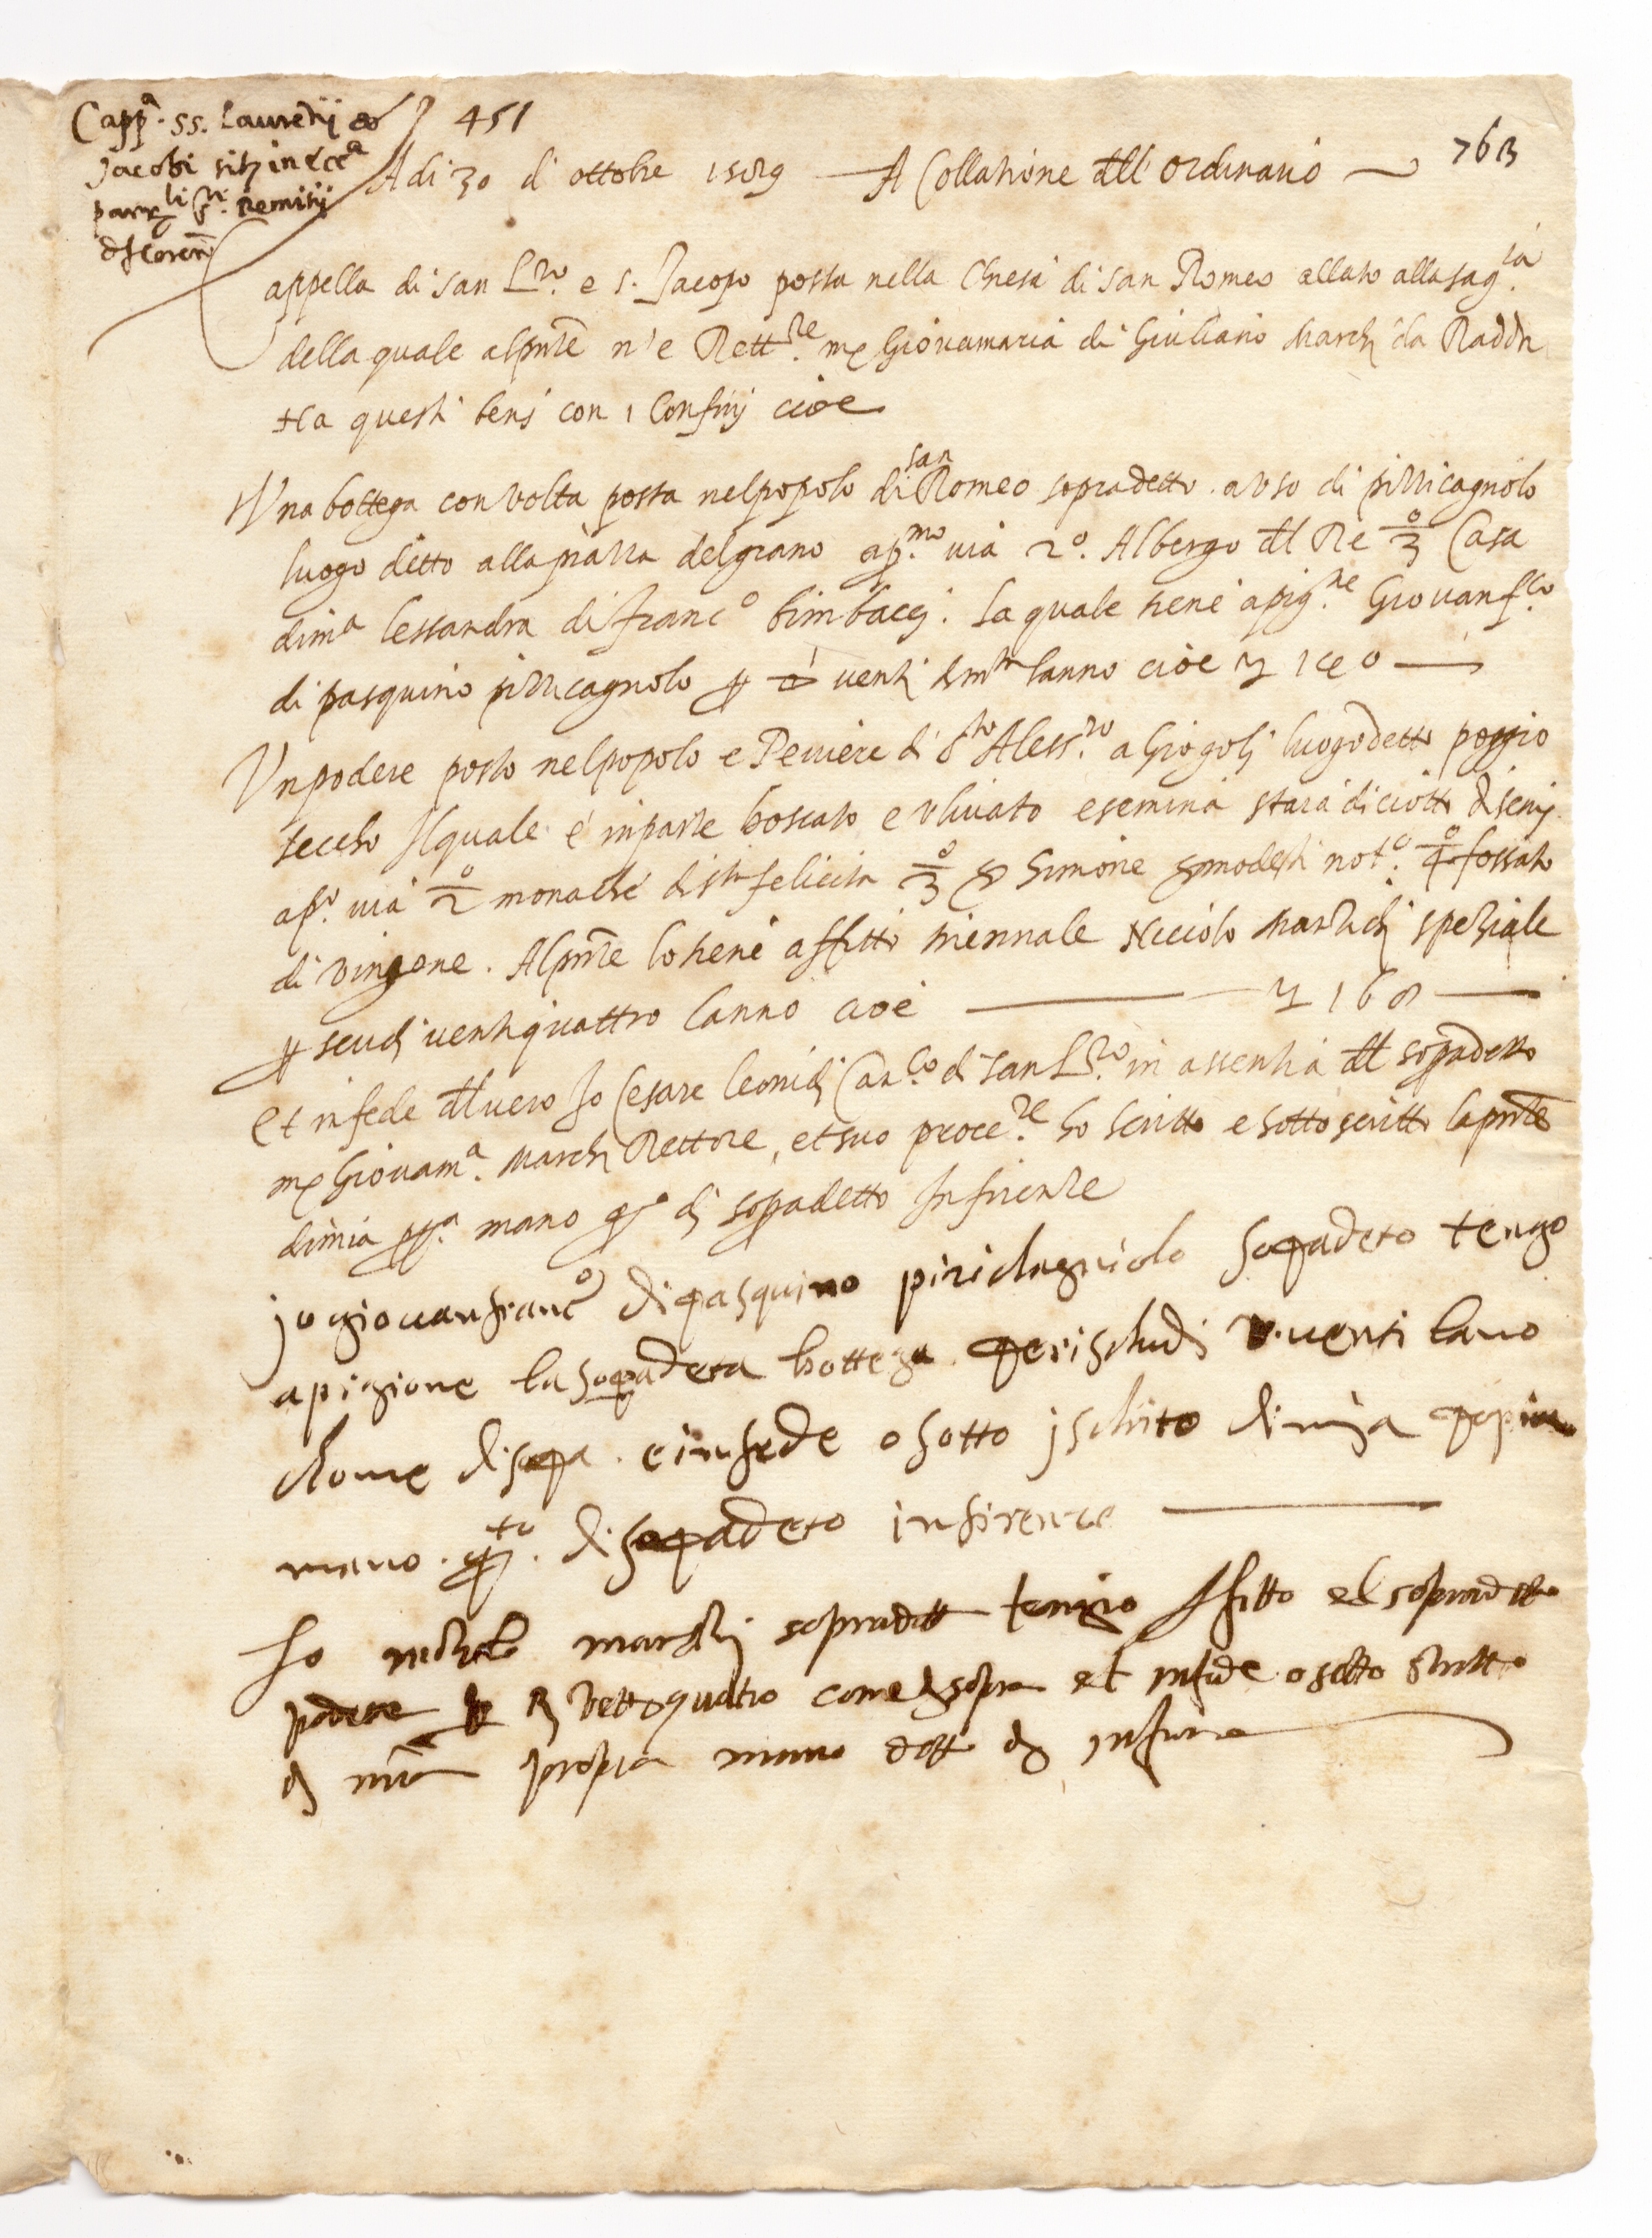 Capp.a SS. Laurentij et
Jacobi sitę in ecc.a
par.li S.ti Remigij
451
763
Adi 30 d ottobre A Collatione dell' Ordinario
Cappella di San L.zo e S. Jacopo posta nella Chiesa di San Romeo allato alla sag.ia
della quale alpnte n'e Rett.re mę Giovamaria di Giuliano March da Radda
Ha questi beni con i Confinj cioe
Una bottega con volta posta nelpopolo di san Romeo sopradetto. a uso di pizzicagnolo
luogo detto alla piazza delgrano ap.mo via 2o. Albergo del Re 3o Casa
di m.a lessandra di franc.o bimbaccj. la quale tiene apig.ne Giovanf.co
di pasquino pizzicagnolo p venti lanno cioe 140
Un podere posto nelpopolo e Peviere di S.to Aless.ro a Giogolj luogo detto poggio
seccho Ilquale e' inparte boscato e ulivato e semina stara diciotto
ap.o via 2o monache di s.ta felicita 3o S Simone not.o 4o fossato
di vingone. Alpnte lo tiene affitto triennale Niccolo speziale
p scudi ventiquattro lanno cioe 168
Et infede del vero Io Cesare leonidi Can.co di San L.zo in assentia del sopradetto
mę Giovam.a March Rettore, et suo procc.re ho scritto e sottoscritto lapnte
dimia pp.a mano di sopradetto In firenze
jo giovanfranc.o dipasquino sopradeto tengo
apigione la sopradeta bottega per ischudi venti lano
chome disopra. e infede o sotto ischrito dimia propia
mano disopradeto infirenze
Io sopradett tengo Affitto el sopradetto
podere p quatro come di sopra et infede o sotto scritto
di mia propia mano dett di infirenze